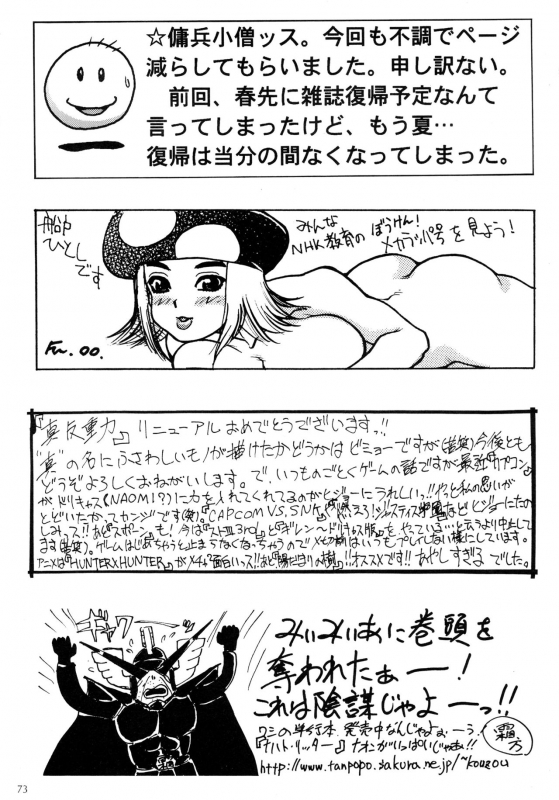 ☆傭兵小僧ッス。今回も不調でページ
減らしてもらいました。申し訳ない。
　前回、春先に雑誌復帰予定なんて
言ってしまったけど、もう夏…
復帰は当分の間なくなってしまった。
船中
ひとし
です
みんな
NHK教育の ぼうけん!
メカラッパ号を見よう!
Fn. 00.
『真反重力』リニューアルおめでとうございますっ!!
"真"の名にふさわしいモノが描けたかどうかは ビミョーですが(苦笑)今後とも
どうぞよろしくおねがいします。で、いつものごとくゲームの話ですが最近『カプコン』
がドリキャス(NAOMI?)に力を入れてくれてるのかとジョーにうれしいっ!!やっと私の思いが
とどいたかってカンジです(笑)。『CAPCOM VS. SNK』
などじょーにたの
しみっス!!あと『スポーン』も!今は『ストⅢ 3rd』と『ギレンの
ゲームはじめちゃうと止まらなくなっちゃうので
アニメは『HUNTER×HUNTER』がメチャ面白いっス!!あと『陽だまりの樹』!!オススメです!!あやしすぎるでした。
ギャワ
みぃみぃはぁに巻頭を
奪われたぁー!
これは陰謀じゃよーっ!!
ワシの単行本 発売中なんじゃよぉーぅ!
『ナハト・リッター』
がいっぱいじゃぁ!!
霜方
http://www.tanpopo.sakura.ne.jp/~kouzou
73